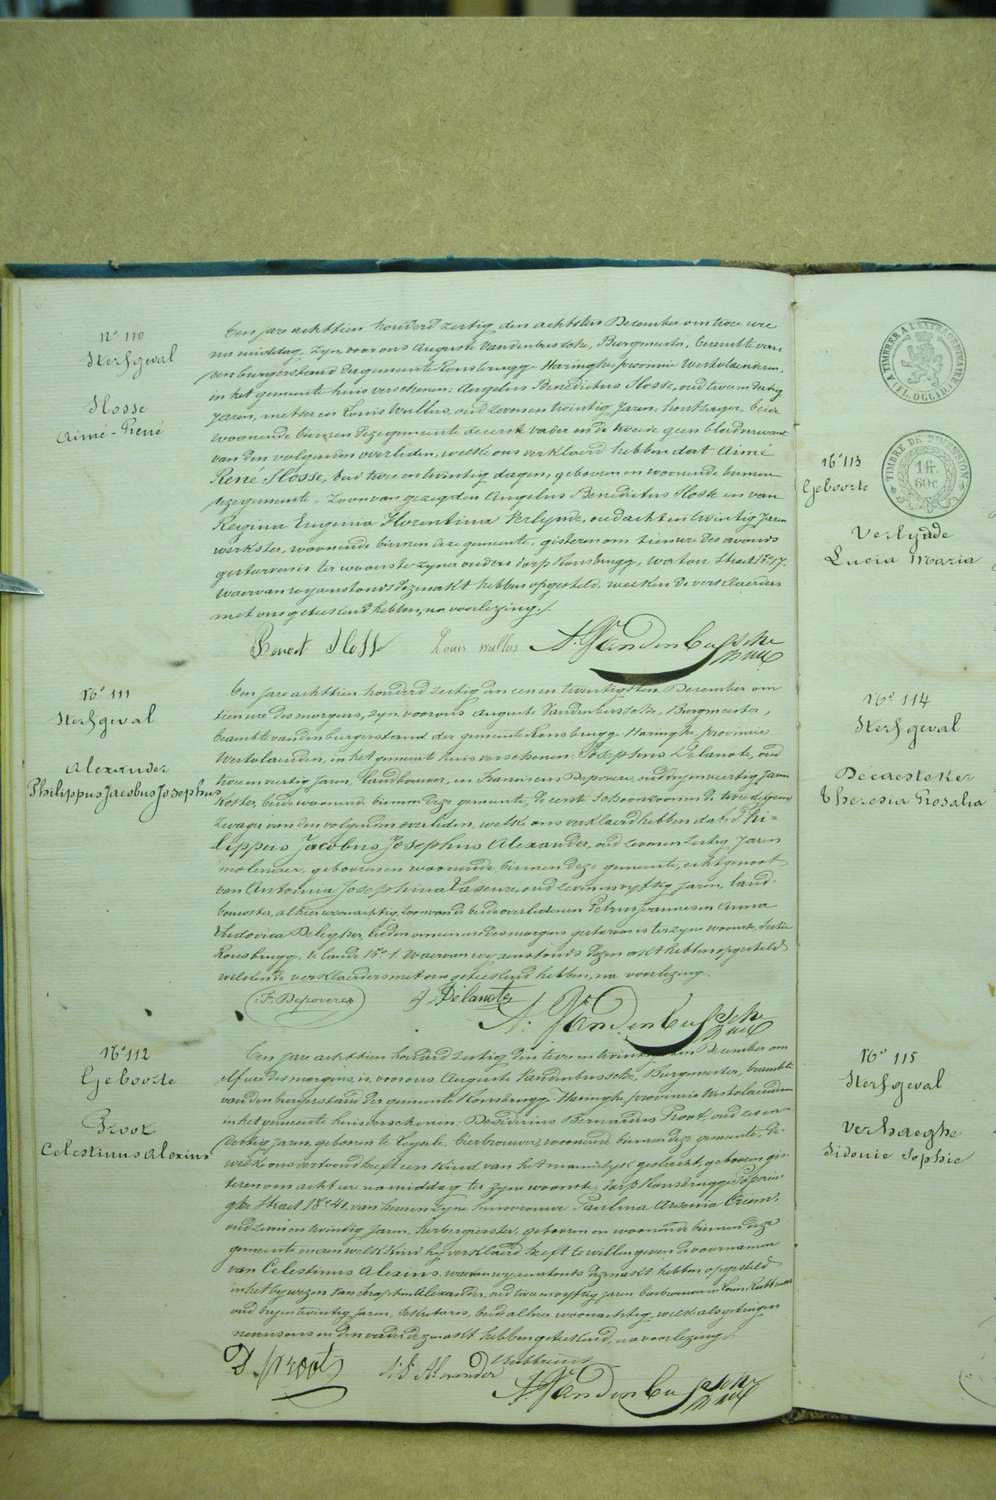 N° 110
Sterfgeval
Hosse
Aimé-René
Ten jare achttien honderd zestig den achtsten December om twee ure
na middag, zyn voor ons Auguste Vandenbussche, Burgmeester, beambte van
den burgerstand der gemeente Rousbrugge Haringhe, provincie Westvlaenderen,
in het gemeente huis verschenen: Angelus Benedictus Hosse, oud twee en dertig
Jaren, metser en Louis Wallus, oud zeven en twintig Jaren, houtzager, beide
woonende binnen deze gemeente de eerste vader en de tweede geen bloedverwant
van den volgenden overleden, welke ons verklaerd hebben dat Aimé
René Hosse, oud twee en twintig dagen, geboren en woonende binnen
deze gemeente, Zoon van gezegden Angelus Benedictus Hosse en van
Regina Eugenia Florentina Verlynde, oud acht en twintig Jaren
werkster, woonende binnen deze gemeente, gisteren om tien ure des avonds
gestorven is ter woonste zyner ouders dorp Rousbrugge, Waton Straet N° 17.
Waervan wy aenstonds dezen akt hebben opgesteld, welken de verklaerders
met ons geteekend hebben, na voorlezing./.
Benoot Hosse Louis wallus A. Vandenbussche
N° 111
Sterfgeval
Alexander
Philippus Jacobus Josephus
Ten jare achttien honderd zestig den een en twintigsten December om
tien ure des morgens, zyn voor ons Auguste Vandenbussche, Burgmeester,
beambte van den burgerstand der gemeente Rousbrugge Haringhe, provincie
Westvlaenderen, in het gemeente huis verschenen: Josephus Delanote, oud
twee en veertig Jaren, landbouwer, en Franciscus Depovere, oud vyf en veertig Jaren
koster, beide woonende binnen deze gemeente, de eerste schoonzoon en de tweede
zwager van den volgenden overleden, welke ons verklaerd hebben dat Phi-
lippus Jacobus Josephus Alexander, oud zeven en zestig Jaren
molenaer, geboren en woonende binnen deze gemeente, echtgenoot
van Antonia Josephina Laseure, oud zeven en vyftig Jaren, land-
bouwster, alhier woonachtig, zoon van de beide overledenen Petrus Joannes en Anna
Ludovica Deleyster, heden om een ure des morgens gestorven is ter zyner woonste, Sectie
Rousbrugge, Lande N° 1. Waervan wy aenstonds dezen akt hebben opgesteld
welken de verklaerders met ons geteekend hebben, na voorlezing.
F. Depovere J Delanote A. Vandenbussche
N° 112
Geboorte
Proot
Celestinus Alexius
Ten jare achttien honderd zestig den twee en twintigsten December om
elf ure des morgens, is voor ons Auguste Vandenbussche, Burgmeester, beambte
van den burgerstand der gemeente Rousbrugge Haringhe, provincie Westvlaenderen
in het gemeente huis verschenen: Desiderius Bernardus Proot, oud zes en
dertig Jaren, geboren te Leysele, bierbrouwer, woonende binnen deze gemeente, de
welke ons vertoond heeft een Kind van het mannelyk geslacht, geboren gis-
teren om acht ure namiddag ter zyner woonste, dorp Rousbrugge Poperin-
ghe Straet N° 41, van hem en zyne huisvrouwe Paulina Arsenia
oud zeven en twintig Jaren, herbergierster, geboren en woonende binnen deze
gemeente en aen welk Kind hy verklaerd heeft te willen geven de voornamen
van Celestinus Alexius. waervan wy aenstonds dezen akt hebben opgesteld
in het bywezen van Josephus Alexander, oud twee en vyftig Jaren
oud dry en twintig Jaren, Sekretaris, beide alhier woonachtig, welke als getuigen
nevens ons en den vader dezen akt hebben geteekend, na voorlezing./.
D. proot Alexander A. Vandenbussche
A TIMBRER A L'EXTRAORDINAIRE
TIMBRE DE DIMENSION
1 fr.
60 c.
N° 113
Geboorte
Verlynde
Lucia Maria
N° 114
Sterfgeval
Decaesteker
Theresia Rosalia
N° 115
Sterfgeval
Verhaeghe
Sidonie Sophie